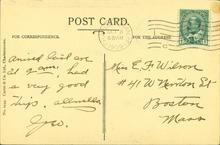 POST CARD.
FOR CORRESPONDENCE.
FOR THE ADDRESS.
Arrived last eve
at 9 a.m. had
a very good
trip.
Geo.
Miss E. F. Wilson
#41 W Newton St
Boston
Mass